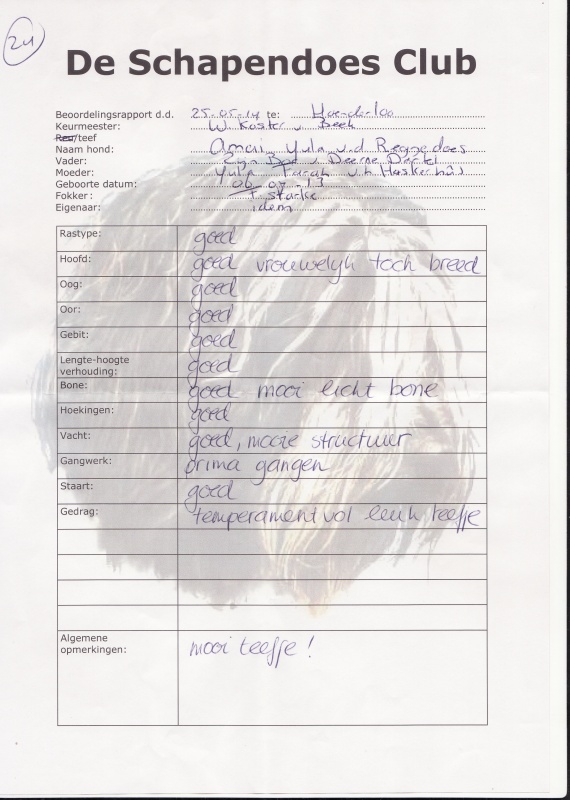 24
De Schapendoes Club
Beoordelingsrapport d.d. 25-05-14 te: Hoenderloo
Keurmeester: W. Koster v Beek
Reu/teef
Naam hond: Yula v.d. Regnedoes
Vader: v Deerne
Moeder: Yulp Farah v.h. Haskerhûs
Geboorte datum: 06-07-13
Fokker: T Starke
Eigenaar: idem
Rastype: goed
Hoofd: goed vrouwelyk toch breed
Oog: goed
Oor: goed
Gebit: goed
Lengte-hoogte
verhouding: goed
Bone: goed mooi licht bone
Hoekingen: goed
Vacht: goed, mooie structuur
Gangwerk: prima gangen
Staart: goed
Gedrag: temperamentvol leuk teefje
Algemene
opmerkingen: mooi teefje!